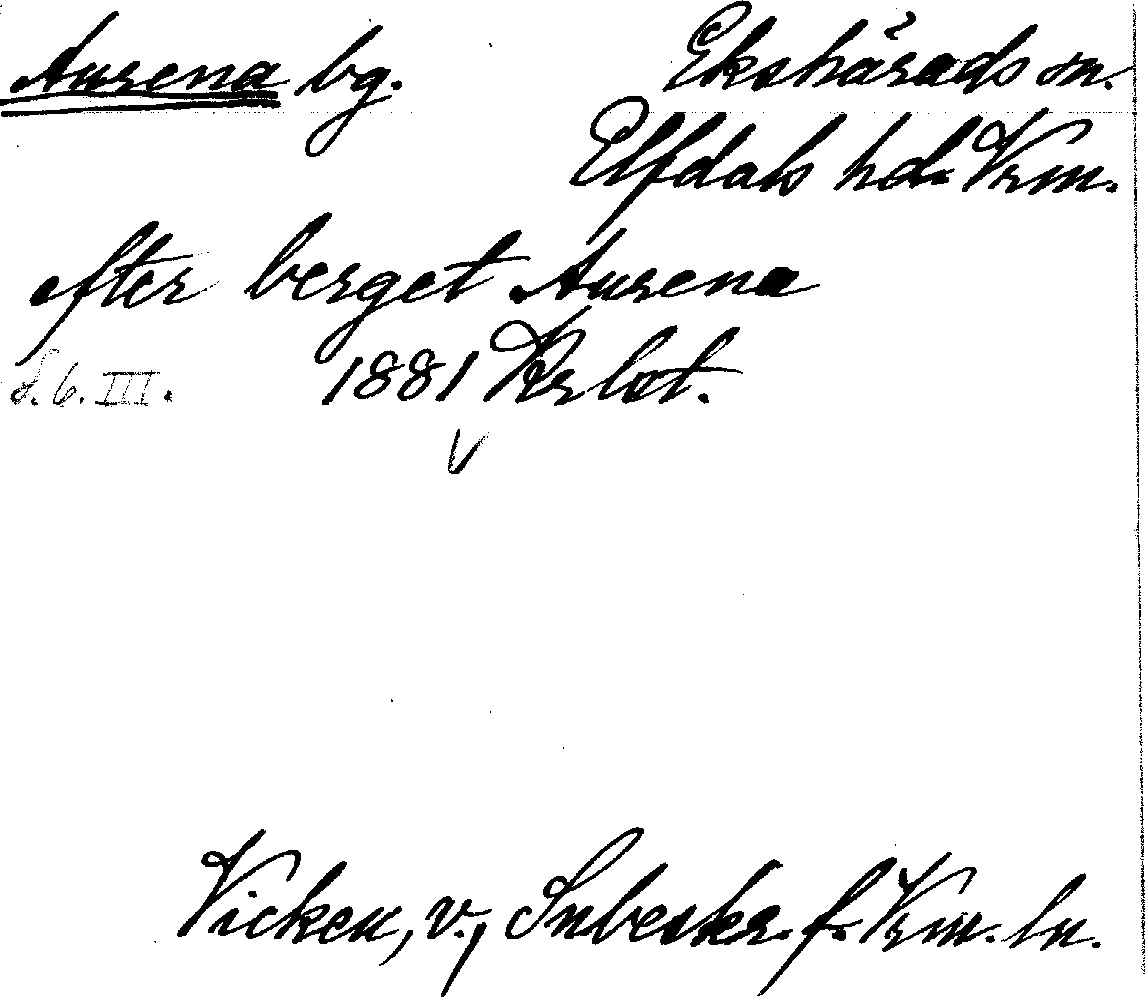 Aurena bg. Ekshärads sn.
Elfdals hd. Vrm.
efter berget Aurena
f. 6. III. 1881
V
Vicken, v., Inbeskr. f. Vrm. ln.